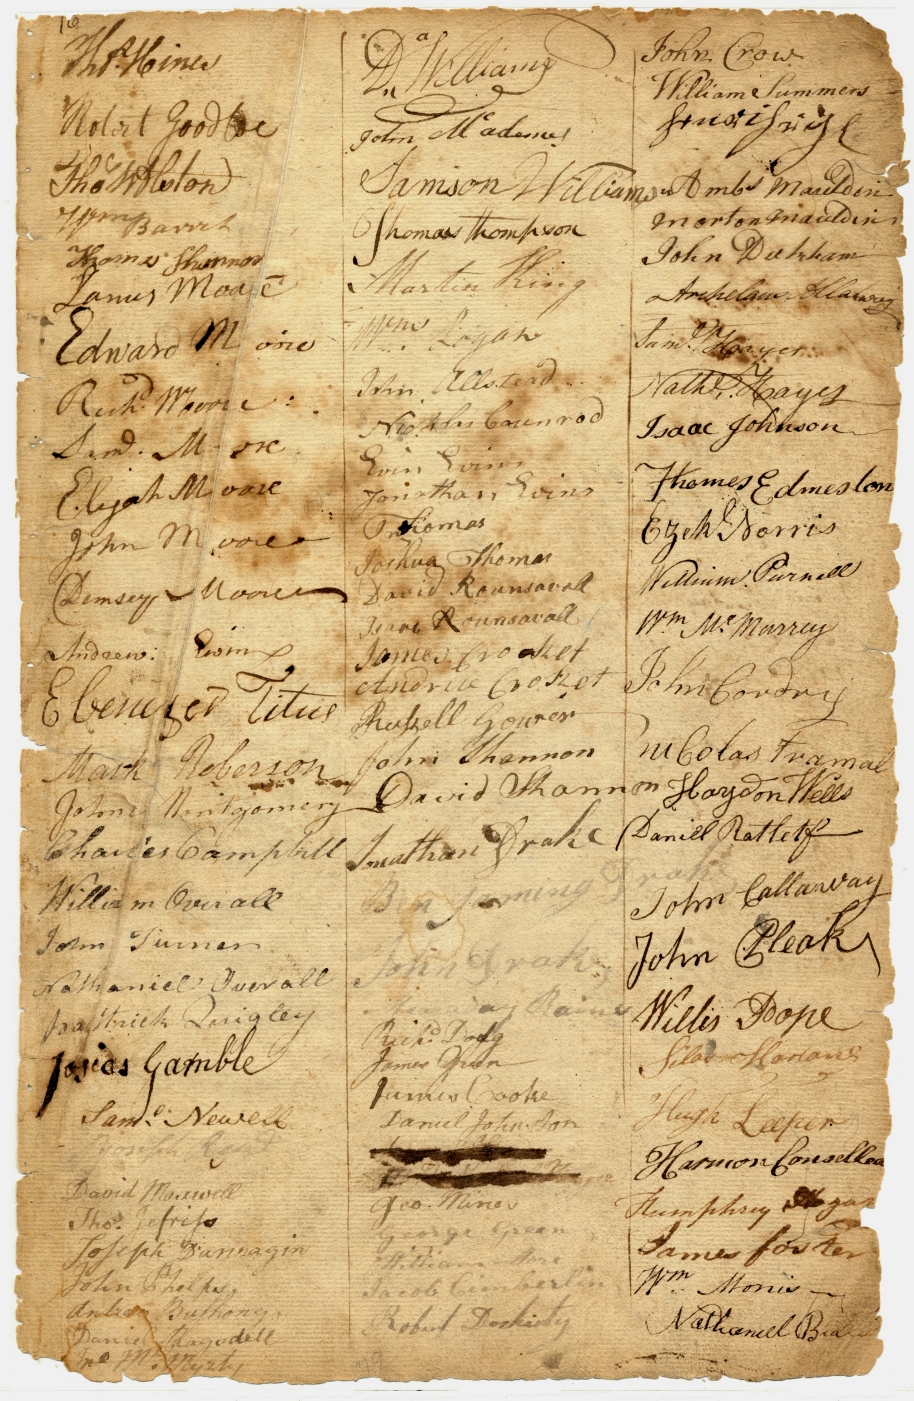 16
Thos. Hines
Robert Goodloe
Thos. W. Alston
Wm Barret
Thomas Shannon
James Moore
Edward Moore
Richd. Moore
Saml. Moore
Elijah Moore
John Moore
Demsey Moore
Andrew: Ewin
Ebenezer Titus
Mark Roberson
John Montgomery
Charles Campbell
William Overall
John Turner
Nathaniel Overall
Patrick Quigley
Josias Gamble
Saml. Newell
Joseph
David Maxwell
Thos. Jefriss
Joseph Dunnagin
John Phelps
Andrew Buthong
Daniel Ragsdell
Jno McMyrty
Da Williams
John McAdames
Samson Williams
Thomas thompson
Martin King
Wm. Logan
John Allstead
Nicholas Counrod
Evin Evins
Jonathan Evins
Thomas
Joshua Thomas
David Rounsavall
Isaac Rounsavall
James Crocket
Andrew Crocket
Russell Gower
John Shannon
David Shannon
Jonathan Drake
Benjaming Drake
John Drake
Rains
Richd. Dodg
James Green
James Cooke
Daniel Johnston
Geo. Mines
George Green
William
Jacob Cimberlin
Robert Dockirty
John Crow
William Summers
Ambs Mauldin
morton mauldin
John Dukham
Archelaus Allaway
Saml. Harper
Nathl. Hayes
Isaac Johnson
Thomas Edmeston
Ezekl Norris
William Purnell
Wm McMurrey
John Cordry
nicolas tramal
Haydon Wells
Daniel Ratletf
John Callaway
John Pleak
Willis Pope
Hugh Leeper
Harmon Consellea
Humphrey Hogan
James foster
Wm Monis
Nathaniell